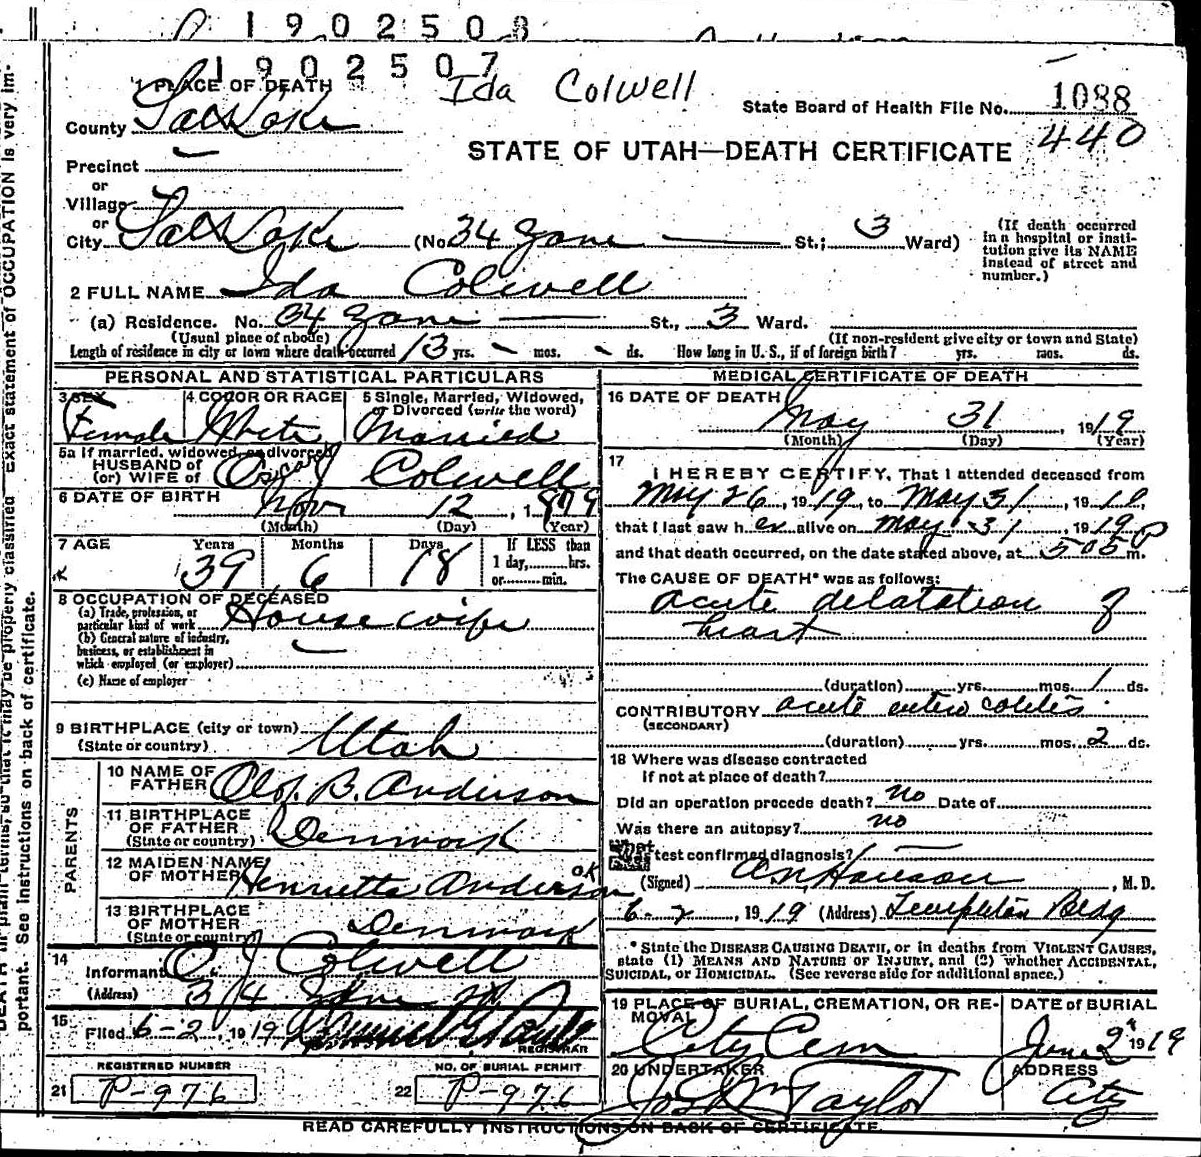 1902508
1902507
Ida Colwell
1 PLACE OF DEATH
State Board of Health File No. 1088
County Salt Lake
440
STATE OF UTAH—DEATH CERTIFICATE
Precinct
or
Village
or
City Salt Lake (No. 34 Zane St.; 3 Ward)
(If death occurred in a hospital or institution give its NAME instead of street and number.)
2 FULL NAME Ida Colwell
(a) Residence. No. 34 Zane St., 3 Ward.
(Usual place of abode) (If non-resident give city or town and State)
Length of residence in city or town where death occurred 13 yrs. - mos. - ds. How long in U. S., if of foreign birth? yrs. mos. ds.
PERSONAL AND STATISTICAL PARTICULARS
3 SEX 4 COLOR OR RACE 5 Single, Married, Widowed,
or Divorced (write the word)
Female White Married
5a If married, widowed, or divorced
HUSBAND of
(or) WIFE of Oscar J Colwell
6 DATE OF BIRTH Nov 12, 1879
(Month) (Day) (Year)
7 AGE Years Months Days If LESS than
1 day, hrs.
or min.
39 6 18
8 OCCUPATION OF DECEASED
(a) Trade, profession, or
particular kind of work Housewife
(b) General nature of industry,
business, or establishment in
which employed (or employer)
(c) Name of employer
9 BIRTHPLACE (city or town)
(State or country) Utah
PARENTS
10 NAME OF
FATHER Olof. B. Anderson
11 BIRTHPLACE
OF FATHER
(State or country) Denmark
12 MAIDEN NAME
OF MOTHER Henrietta Anderson OK
13 BIRTHPLACE
OF MOTHER
(State or country) Denmark
14
Informant O. J Colwell
(Address) 34 Zane
15
Filed 6-2, 1919
REGISTRAR
REGISTERED NUMBER NO. OF BURIAL PERMIT
21 P-976 22 P-976
MEDICAL CERTIFICATE OF DEATH
16 DATE OF DEATH
May 31, 1919
(Month) (Day) (Year)
17
I HEREBY CERTIFY, That I attended deceased from
May 26, 1919, to May 31, 1919,
that I last saw her alive on May 31, 1919
and that death occurred, on the date stated above, at 505 P m.
The CAUSE OF DEATH* was as follows:
acute delatation of
heart
(duration) yrs. mos. 1 ds.
CONTRIBUTORY acute entero colitis
(SECONDARY)
(duration) yrs. mos. 2 ds.
18 Where was disease contracted
if not at place of death?
Did an operation precede death? no Date of
Was there an autopsy? no
What test confirmed diagnosis?
(Signed) A.N. Hanson, M. D.
6-2, 1919 (Address) Templeton Bldg
* State the DISEASE CAUSING DEATH, or in deaths from VIOLENT CAUSES,
state (1) MEANS AND NATURE OF INJURY, and (2) whether ACCIDENTAL,
SUICIDAL, or HOMICIDAL. (See reverse side for additional space.)
19 PLACE OF BURIAL, CREMATION, OR RE-
MOVAL DATE of BURIAL
City Cem June 2" 1919
20 UNDERTAKER ADDRESS
Jos Wm Taylor City
READ CAREFULLY INSTRUCTIONS ON BACK OF CERTIFICATE.
DEATH in plain terms, so that it may be properly classified. Exact statement of OCCUPATION is very im-
portant. See instructions on back of certificate.